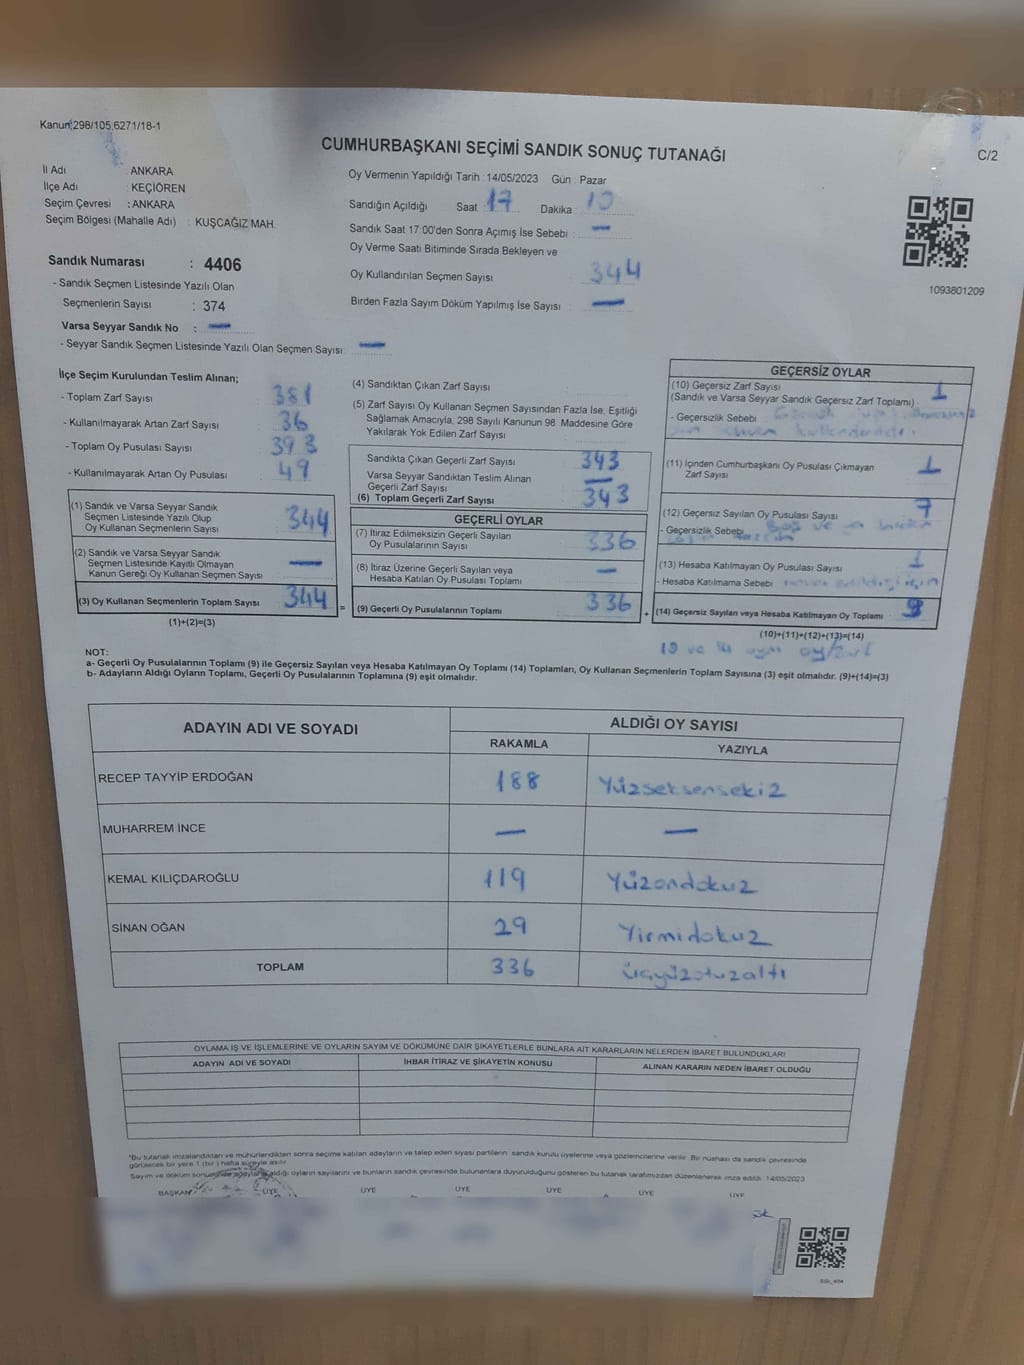 Kanun;298/105,6271/18-1
CUMHURBAŞKANI SEÇİMİ SANDIK SONUÇ TUTANAĞI
C/2
İl Adı : ANKARA
İlçe Adı : KEÇİÖREN
Seçim Çevresi : ANKARA
Seçim Bölgesi (Mahalle Adı) : KUŞCAĞIZ MAH.
Oy Vermenin Yapıldığı Tarih : 14/05/2023 Gün : Pazar
Sandığın Açıldığı Saat 17 Dakika 10
Sandık Saat 17:00'den Sonra Açımış İse Sebebi : —
Oy Verme Saati Bitiminde Sırada Bekleyen ve
Oy Kullandırılan Seçmen Sayısı : 344
Birden Fazla Sayım Döküm Yapılmış İse Sayısı : —
1093801209
Sandık Numarası : 4406
- Sandık Seçmen Listesinde Yazılı Olan
Seçmenlerin Sayısı : 374
Varsa Seyyar Sandık No : —
- Seyyar Sandık Seçmen Listesinde Yazılı Olan Seçmen Sayısı: —
İlçe Seçim Kurulundan Teslim Alınan;
- Toplam Zarf Sayısı : 381
- Kullanılmayarak Artan Zarf Sayısı : 36
- Toplam Oy Pusulası Sayısı : 393
- Kullanılmayarak Artan Oy Pusulası : 49
(1) Sandık ve Varsa Seyyar Sandık
Seçmen Listesinde Yazılı Olup
Oy Kullanan Seçmenlerin Sayısı : 344
(2) Sandık ve Varsa Seyyar Sandık
Seçmen Listesinde Kayıtlı Olmayan
Kanun Gereği Oy Kullanan Seçmen Sayısı : —
(3) Oy Kullanan Seçmenlerin Toplam Sayısı : 344
(1)+(2)=(3)
(4) Sandıktan Çıkan Zarf Sayısı :
(5) Zarf Sayısı Oy Kullanan Seçmen Sayısından Fazla İse, Eşitliği
Sağlamak Amacıyla, 298 Sayılı Kanunun 98. Maddesine Göre
Yakılarak Yok Edilen Zarf Sayısı :
Sandıkta Çıkan Geçerli Zarf Sayısı : 343
Varsa Seyyar Sandıktan Teslim Alınan
Geçerli Zarf Sayısı : —
(6) Toplam Geçerli Zarf Sayısı : 343
GEÇERLİ OYLAR
(7) İtiraz Edilmeksizin Geçerli Sayılan
Oy Pusulalarının Sayısı : 336
(8) İtiraz Üzerine Geçerli Sayılan veya
Hesaba Katılan Oy Pusulası Toplamı : —
= (9) Geçerli Oy Pusulalarının Toplamı : 336 +
GEÇERSİZ OYLAR
(10) Geçersiz Zarf Sayısı
(Sandık ve Varsa Seyyar Sandık Geçersiz Zarf Toplamı) : 1
- Geçersizlik Sebebi :
(11) İçinden Cumhurbaşkanı Oy Pusulası Çıkmayan
Zarf Sayısı : 1
(12) Geçersiz Sayılan Oy Pusulası Sayısı : 7
- Geçersizlik Sebebi :
(13) Hesaba Katılmayan Oy Pusulası Sayısı : 1
- Hesaba Katılmama Sebebi :
(14) Geçersiz Sayılan veya Hesaba Katılmayan Oy Toplamı : 9
(10)+(11)+(12)+(13)=(14)
NOT:
a- Geçerli Oy Pusulalarının Toplamı (9) ile Geçersiz Sayılan veya Hesaba Katılmayan Oy Toplamı (14) Toplamları, Oy Kullanan Seçmenlerin Toplam Sayısına (3) eşit olmalıdır. (9)+(14)=(3)
b- Adayların Aldığı Oyların Toplamı, Geçerli Oy Pusulalarının Toplamına (9) eşit olmalıdır.
ADAYIN ADI VE SOYADI
ALDIĞI OY SAYISI
RAKAMLA YAZIYLA
RECEP TAYYİP ERDOĞAN 188 Yüzseksensekiz
MUHARREM İNCE — —
KEMAL KILIÇDAROĞLU 119 Yüzondokuz
SİNAN OĞAN 29 Yirmidokuz
TOPLAM 336 üçyüzotuzaltı
OYLAMA İŞ VE İŞLEMLERİNE VE OYLARIN SAYIM VE DÖKÜMÜNE DAİR ŞİKAYETLERLE BUNLARA AİT KARARLARIN NELERDEN İBARET BULUNDUKLARI
ADAYIN ADI VE SOYADI İHBAR İTİRAZ VE ŞİKAYETİN KONUSU ALINAN KARARIN NEDEN İBARET OLDUĞU
*Bu tutanak imzalandıktan ve mühürlendikten sonra seçime katılan adayların ve talep eden siyasi partilerin sandık kurulu üyelerine veya gözlemcilerine verilir. Bir nüshası da sandık çevresinde
görülecek bir yere 1 (bir) hafta süreyle asılır.
Sayım ve döküm sonucunda adayların aldığı oyların sayılarını ve bunların sandık çevresinde bulunanlara duyurulduğunu gösteren bu tutanak tarafımızdan düzenlenerek imza edildi. 14/05/2023
BAŞKAN ÜYE ÜYE ÜYE ÜYE ÜYE ÜYE